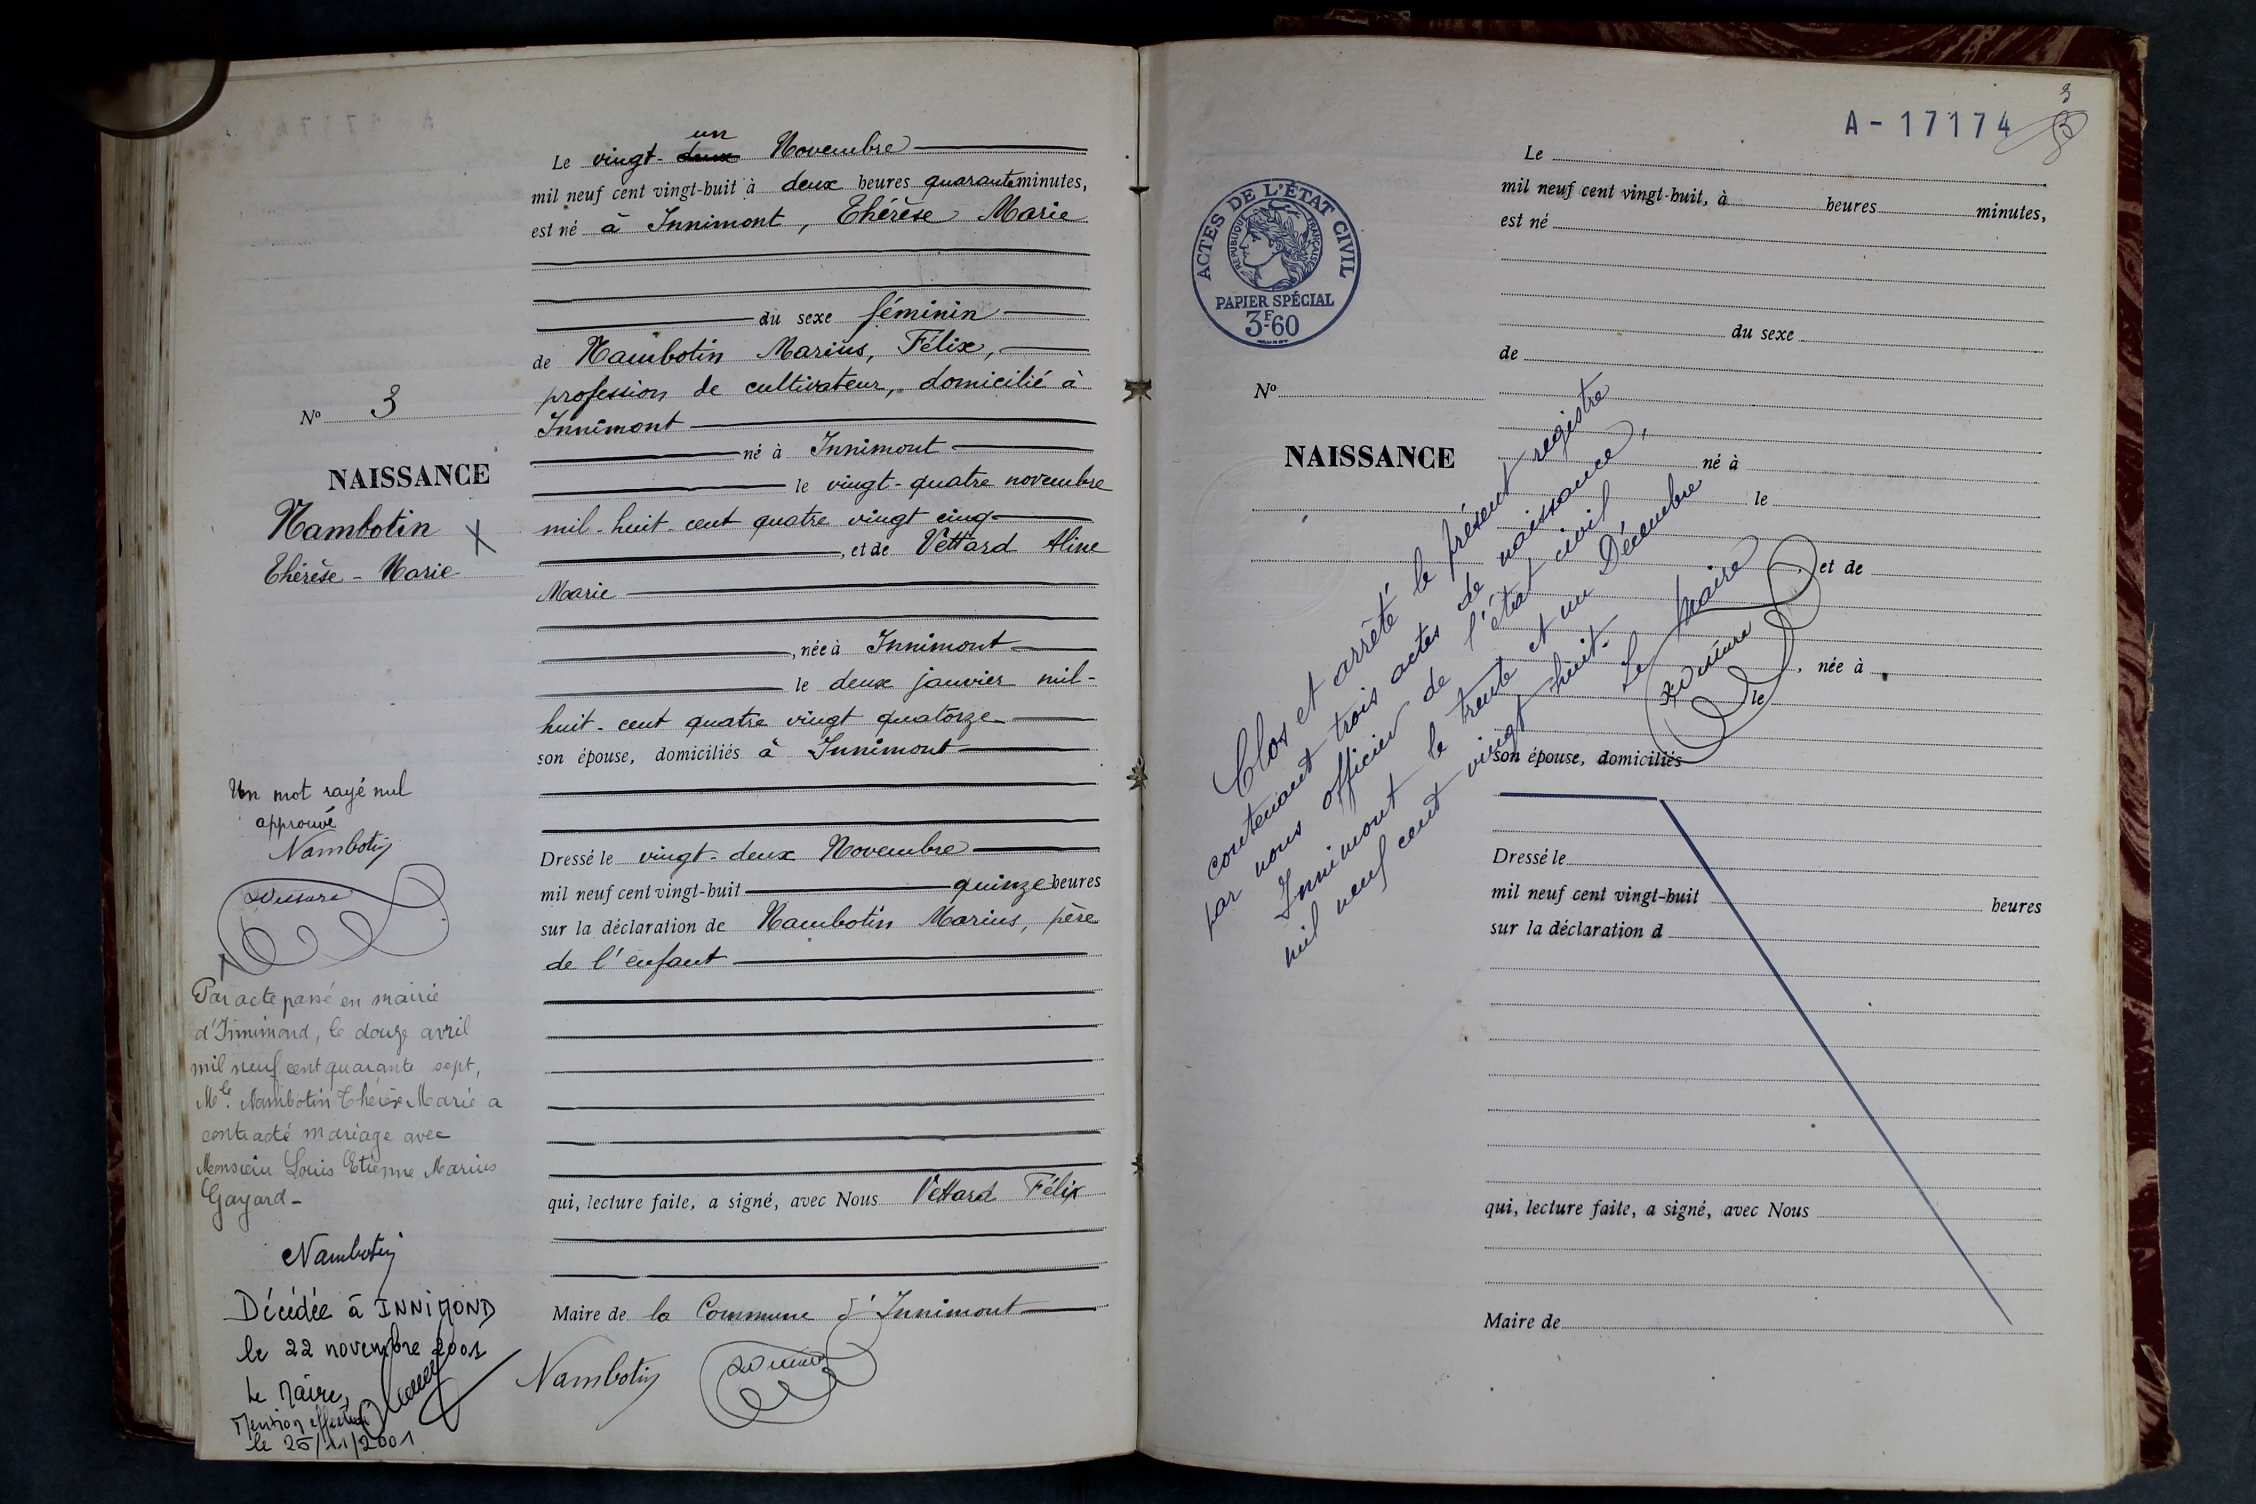 N° 3
NAISSANCE
Nambotin
Thérèse - Marie
Un mot rayé nul
approuvé
Nambotin
Par acte passé en mairie
d'Innimond, le douze avril
mil neuf cent quarante sept,
Mlle Nambotin Thérèse Marie a
contracté mariage avec
Monsieur Louis Etienne Marius
Gayard -
Nambotin
Décédée à INNIMOND
le 22 novembre 2001
Le Maire,
Mention effectuée
le 26/11/2001
un
Le vingt-deux Novembre
mil neuf cent vingt-huit à deux heures quarante minutes,
est né à Innimont, Thérèse Marie
du sexe féminin
de Nambotin Marius, Félix,
profession de cultivateur, domicilié à
Innimont
né à Innimont
le vingt-quatre novembre
mil-huit-cent quatre vingt cinq
, et de Vettard Aline
Marie
, née à Innimont
le deux janvier mil-
huit-cent quatre vingt quatorze
son épouse, domiciliés à Innimont
Dressé le vingt-deux Novembre
mil neuf cent vingt-huit quinze heures
sur la déclaration de Nambotin Marius, père
de l'enfant
qui, lecture faite, a signé, avec Nous Vettard Félix
Maire de la Commune d'Innimont
Nambotin
3
A-17174
ACTES DE L'ÉTAT CIVIL
RÉPUBLIQUE FRANÇAISE
PAPIER SPÉCIAL
3F-60
N°
NAISSANCE
Le
mil neuf cent vingt-huit, à heures minutes,
est né
du sexe
de
né à
le
, et de
, née à
le
son épouse, domiciliés
Dressé le
mil neuf cent vingt-huit heures
sur la déclaration d
qui, lecture faite, a signé, avec Nous
Maire de
Clos et arrêté le présent registre
contenant trois actes de naissance,
par nous officier de l'état civil
Innimont le trente et un Décembre
mil neuf cent vingt huit.
Le Maire